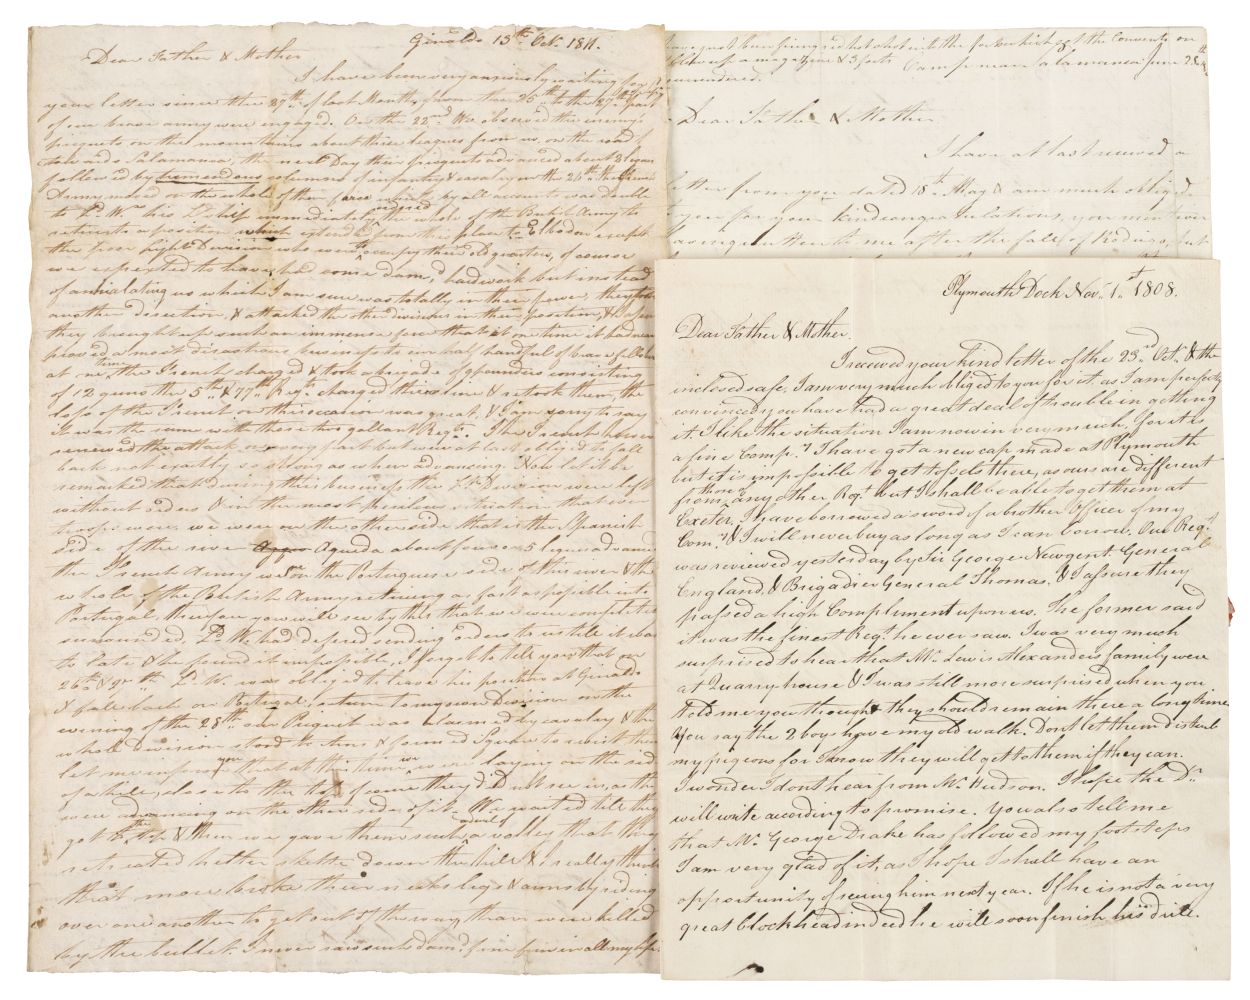 Ginaldo 13th Oct. 1811.
Dear Father & Mother
I have been very anxiously waiting for
your letter since the 27th of last Month, from the 25th to the 27th part
of our brave army were engaged. On the 22nd We observed the enemy's
piquets on the mountains about three leagues from us, on the road
towards Salamanca, the next Day their piquets advanced about 3 ligues
followed by tremendous columns of infantry & cavalry on the 24th the
Army moved on the whole of their force which by all accounts was double
to Ld. W. his Ldship immediately ordered the whole of the British Army to
retire to a position which extended from this place to Elbodon except
the poor light Division who were to occupy their old quarters, of course
we expected to have had some damd. hard work but instead
of anihilating us which I am sure was totally in their power, they took
another direction, & attacked the other divisions in their position, &
they brought up such an immense force that at one time it had near
proved a most disastrous business to our half handful of brave fellows
at one time the French charged & took a brigade of 9 pounders consisting
of 12 guns the 5th & 77th Regts. charged their line & retook them, the
loss of the French on this occasion was great, & I am sorry to say
it was the same with these two gallant Regts. The French
renewed the attack on every part but were at last obliged to fall
back not quitly so strong as when advancing. Now let it be
remarked that during this business the Lt. Division were left
without orders & in the most perilous situation that ever
troops were, we were on the other side that is the Spanish
side of the river Agueda about four or 5 ligues advanced
the French Army were on the Portuguese side of this river & the
whole of the British Army retiring as fast as possible into
Portugal, therefore you will see by this that we were completely
surrounded, Ld. W. had defered sending orders to us till it was
to late & he found it impossible, I forgot to tell you that on
26th & 27th Ld. W. was obliged to leave his position at Ginaldo
& fall back on Portugal, return to my own Division on the
evining of the 25th our Piquet was alarmed by cavalry & the
whole Division stood to Arms & formed Square to receive them
let me inform you that at this time we were laying on the side
of a hill, close to the top of course they did not see us, as they
were advancing on the other side of it. We waited till they
got to the top & then we gave them such a devil of a volley that they
retreated helter skelter down the hill & I really think
that more broke their necks legs & arms by riding
over one another to get out of the way than were killed
by the bullet. I never saw such damd. fine fun in all my life.
have just been firing red hot shot into the fort which set the Convents on
blew up a magazine & 3 forts Camp near Salamanca June 28th
surrendered.
Dear Father & Mother
I have at last received a
letter from you dated 18th May & am much obliged
to you for your kind congratulations, you mention
having written to me after the fall of Rodrigo, but
Plymouth Dock Nov. 1st 1808.
Dear Father & Mother.
I received your kind letter of the 23rd Oct. & the
inclosed safe. I am very much obliged to you for it. as I am perfectly
convinced you have had a great deal of trouble in getting
it. I like the situation I am now in very much, for it is
a fine Comp.y I have got a new cap made at Plymouth
but it is impossible to get tossels there, as ours are different
from those of any other Regt. but I shall be able to get them at
Exeter. I have borrowed a sword of a brother Officer of my
Com.y & I will never buy as long as I can borrow. Our Regt.
was reviewed yesterday by Sir George Newgent. General
England, & Brigadier General Thomas, & I assure they
passed a high Compliment upon us. The former said
it was the finest Regt. he ever saw. I was very much
surprised to hear that Mr. Lewis Alexanders family were
at Quarry-house & I was still more surprised when you
told me you thought they should remain there a long time
You say the 2 boys have my old walk. Dont let them disturb
my pigeons for I know they will get to them if they can.
I wonder I dont hear from Mr. Hudson. I hope the Dr.
will write according to promise. You also tell me
that Mr. George Drake has followed my footsteps
I am very glad of it, as I hope I shall have an
opportunity of seeing him next year. If he is not a very
great blockhead indeed he will soon finish his drill.